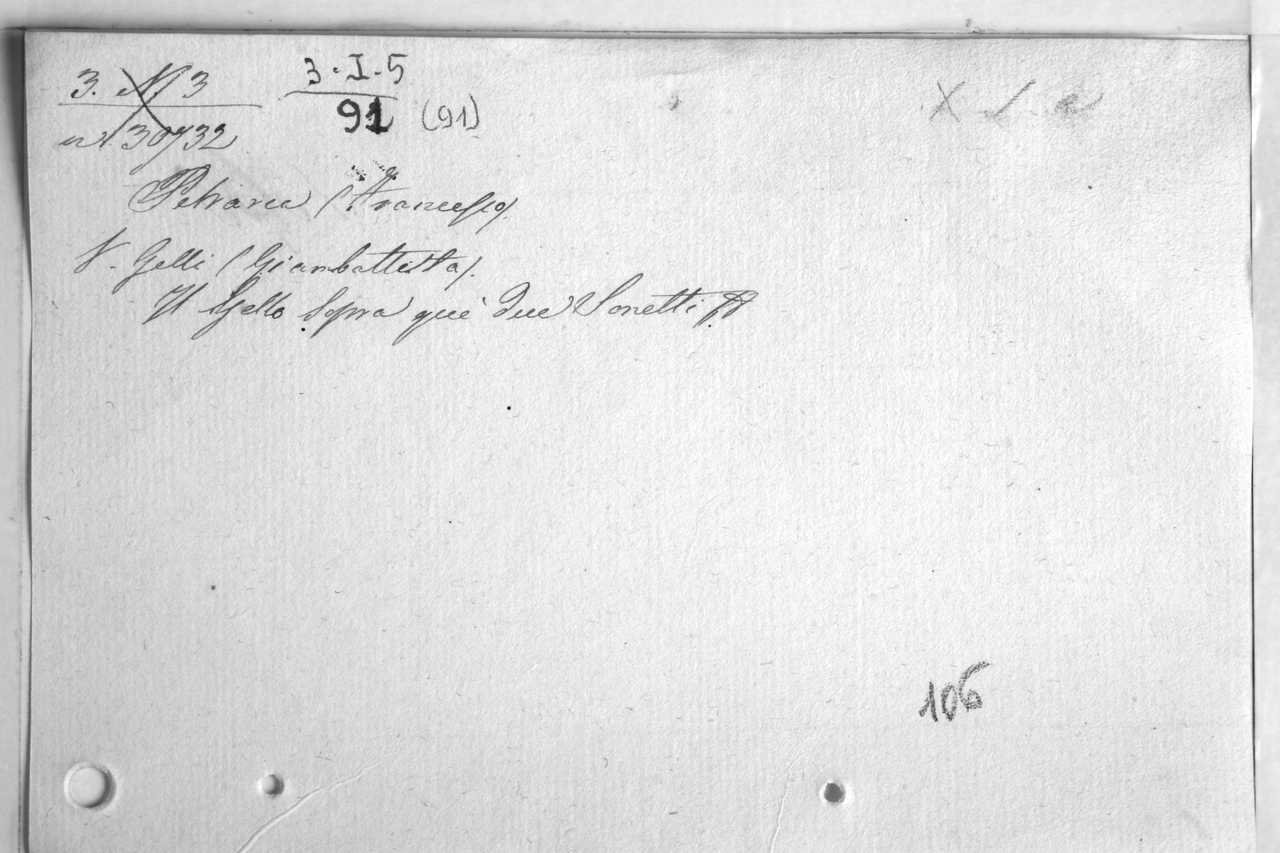 3. M 3
3-I-5
n. 30732
91 (91)
Petrarca (Francesco).
V. Gelli (Giambattista).
Il Gello sopra que' due Sonetti
106